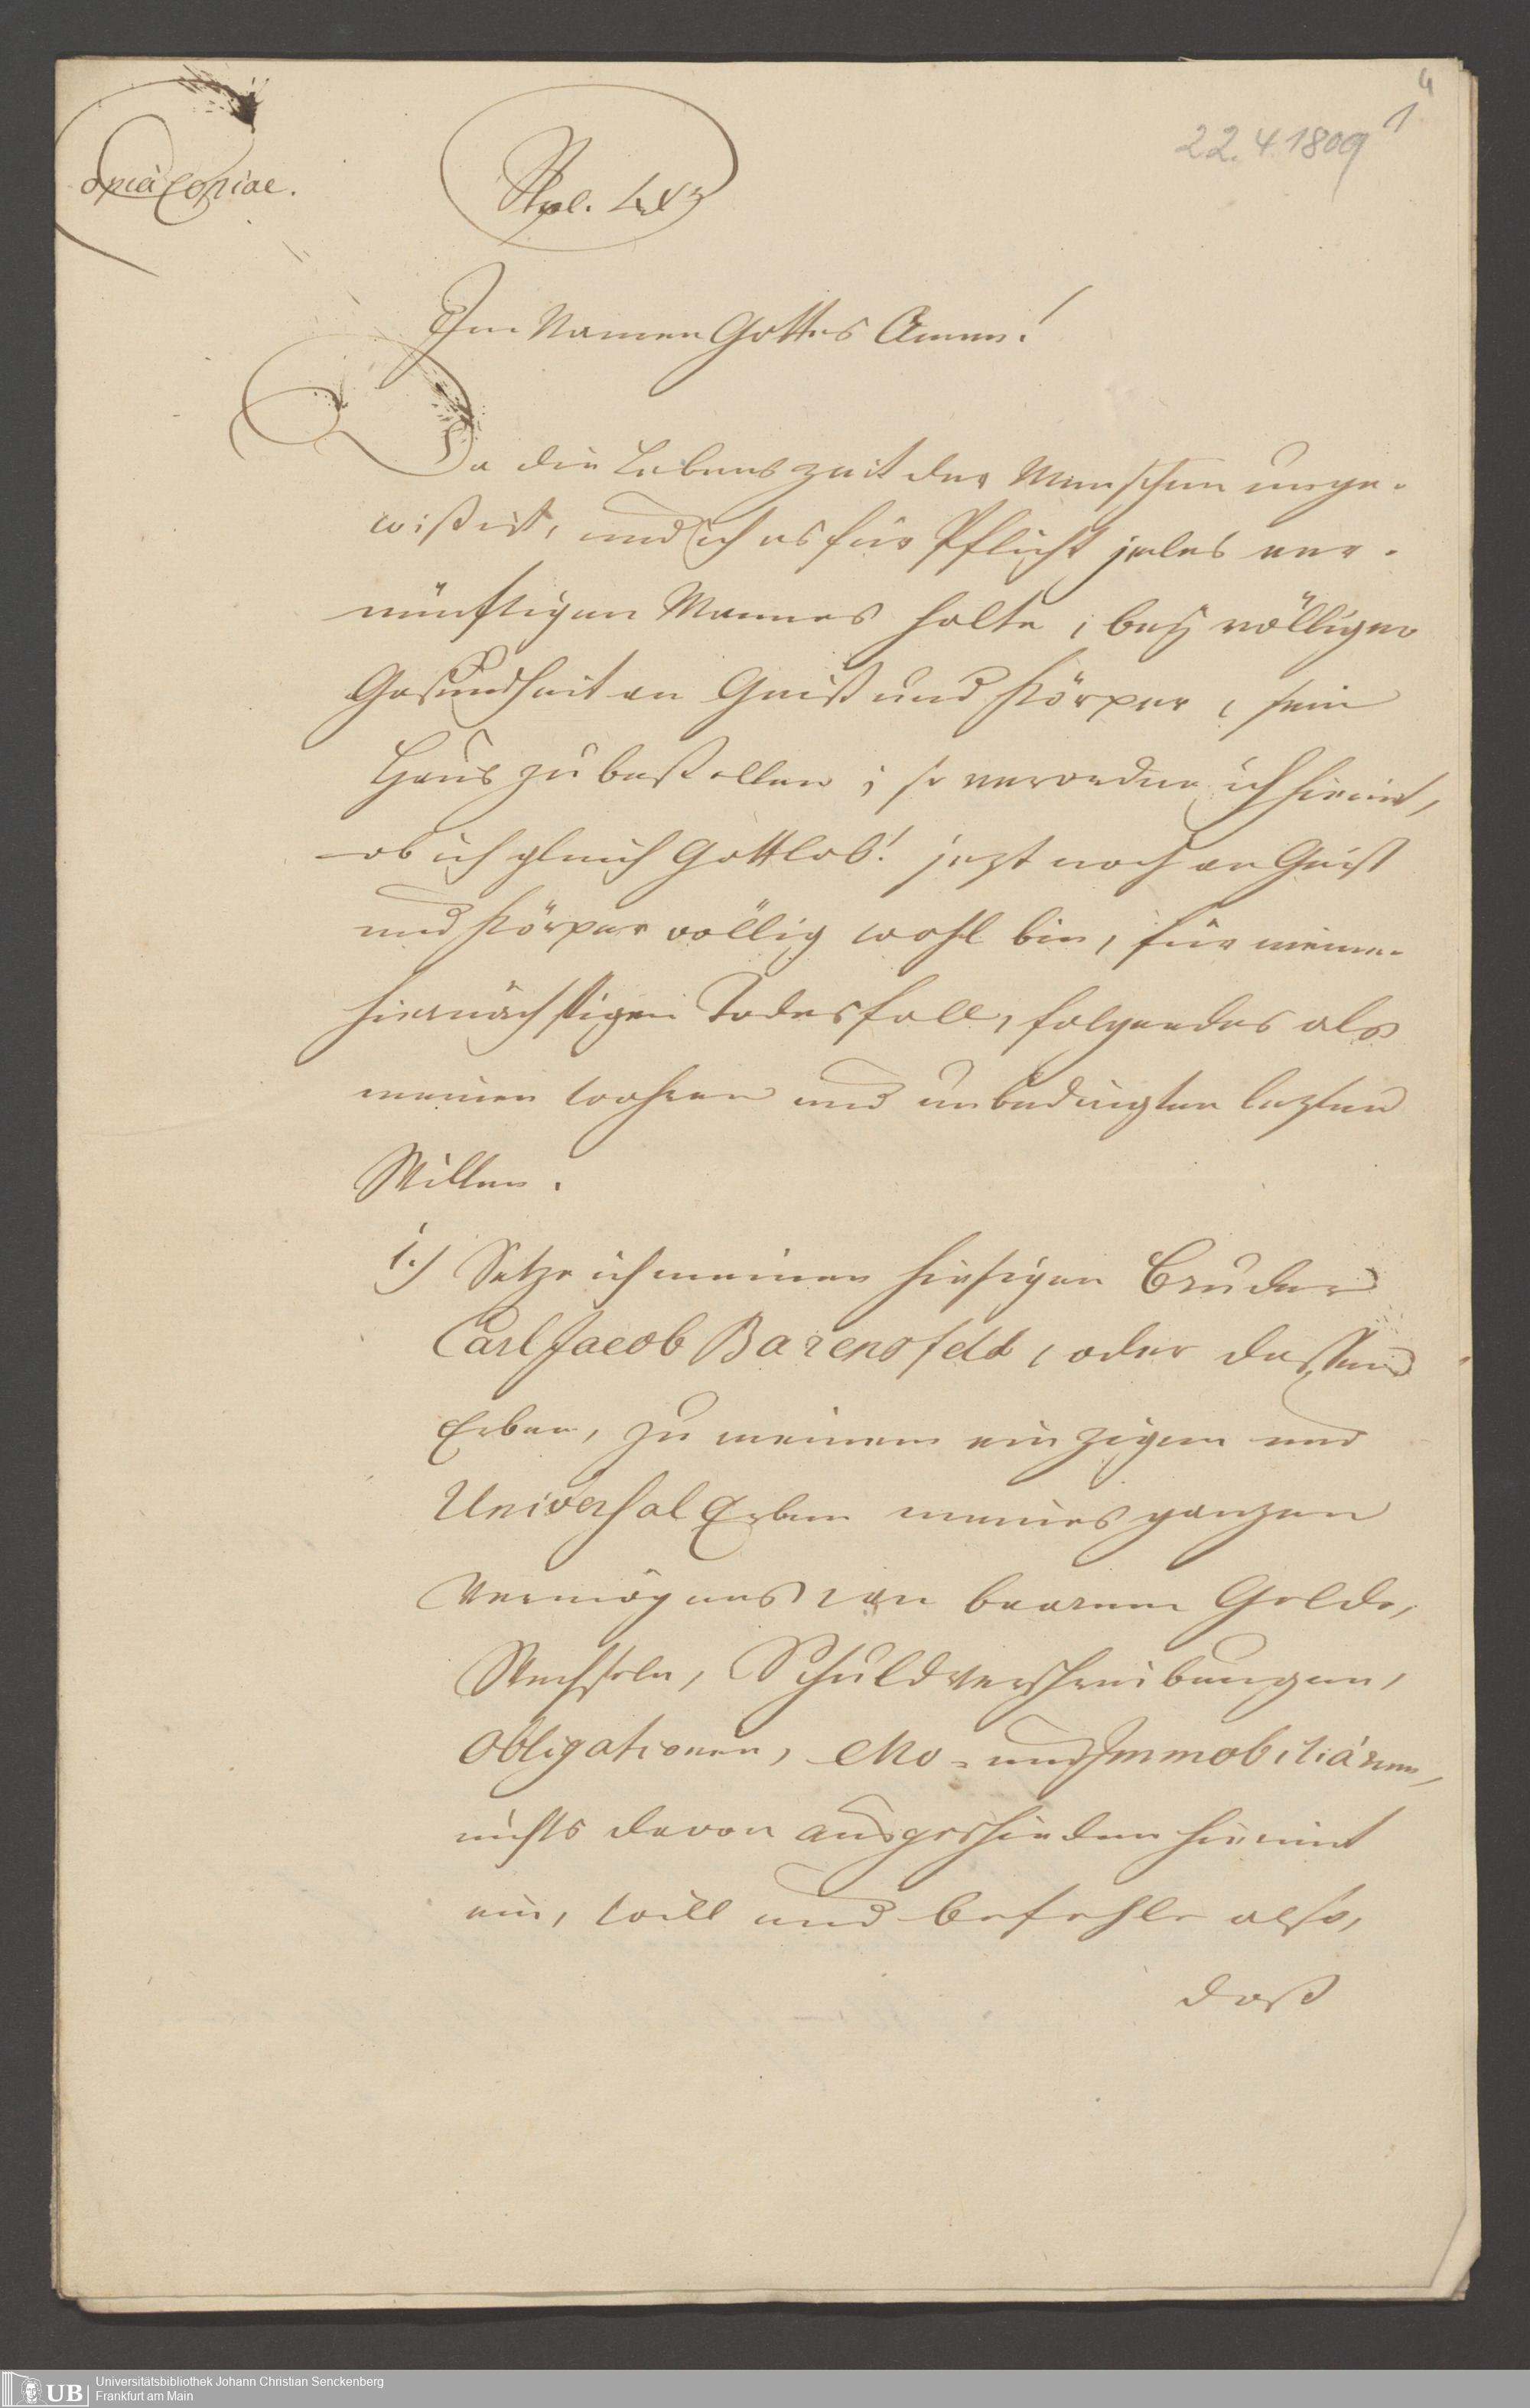 4
22.4.1809
1
Copia Copiae.
Stpl.
Im Namen Gottes Amen!
Da die Lebenszeit der Menschen unge-
wiß ist, und ich es für Pflicht jedes ver-
nünftigen Mannes halte, bey völliger
Gesundheit an Geist und Körper, sein
Haus zu bestellen; so verordne ich hiemit,
ob ich gleich Gottlob! jezt noch an Geist
und Körper völlig wohl bin, für meinen
hiernächstigen Todesfall, folgendes als
meinen wahren und unbedingten lezten
Willen.
1.) Setze ich meinen hiesigen Bruder
Carl Jacob Barensfeld, oder dessen
Erben, zu meinem einzigen und
Universal Erben meines ganzen
Vermögens von baarem Gelde,
Wechseln, Schuldverschreibungen,
Obligationen, Mo- und Immobiliären,
nichts davon ausgeschieden hiemit
ein, will und befehle also,
daß
Universitätsbibliothek Johann Christian Senckenberg
Frankfurt am Main
UB